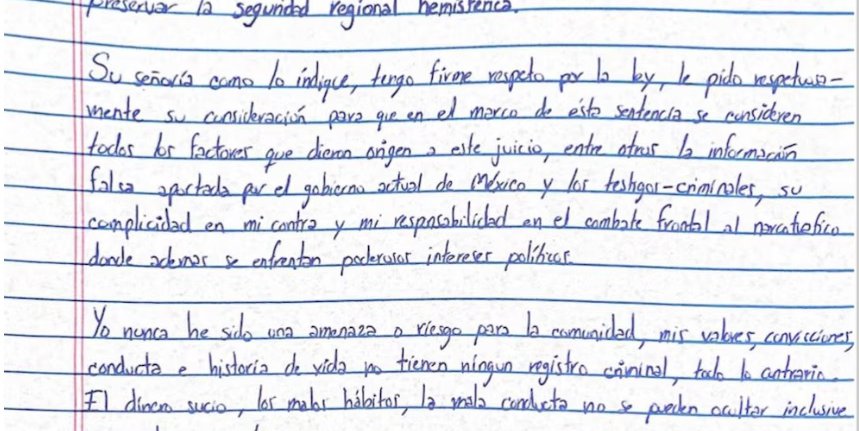 preservar la seguridad regional hemisférica.
Su señoría como lo indique, tengo firme respeto por la ley, le pido respetuosa-
mente su consideración para que en el marco de ésta sentencia se consideren
todos los factores que dieron origen a este juicio, entre otros la información
falsa aportada por el gobierno actual de México y los testigos-criminales, su
complicidad en mi contra y mi responsabilidad en el combate frontal al narcotrafico
donde ademas se enfrentan poderosos intereses políticos.
Yo nunca he sido una amenaza o riesgo para la comunidad, mis valores, convicciones,
conducta e historia de vida no tienen ningun registro criminal, todo lo contrario.
El dinero sucio, los malos hábitos, la mala conducta no se pueden ocultar inclusive